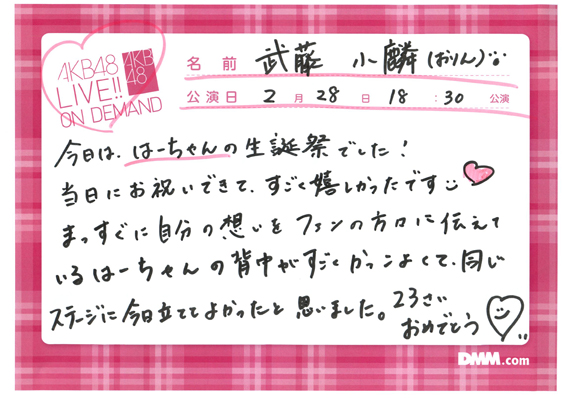 AKB48
LIVE!!
ON DEMAND
AKB
48
名前 武藤 小麟(おりん)
公演日 2月28日 18:30公演
今日は、はーちゃんの生誕祭でした!
当日にお祝いできて、すごく嬉しかったです
まっすぐに自分の想いをファンの方々に伝えて
いるはーちゃんの背中がすごくかっこよくて、同じ
ステージに今日立ててよかったと思いました。23さい
おめでとう
DMM.com